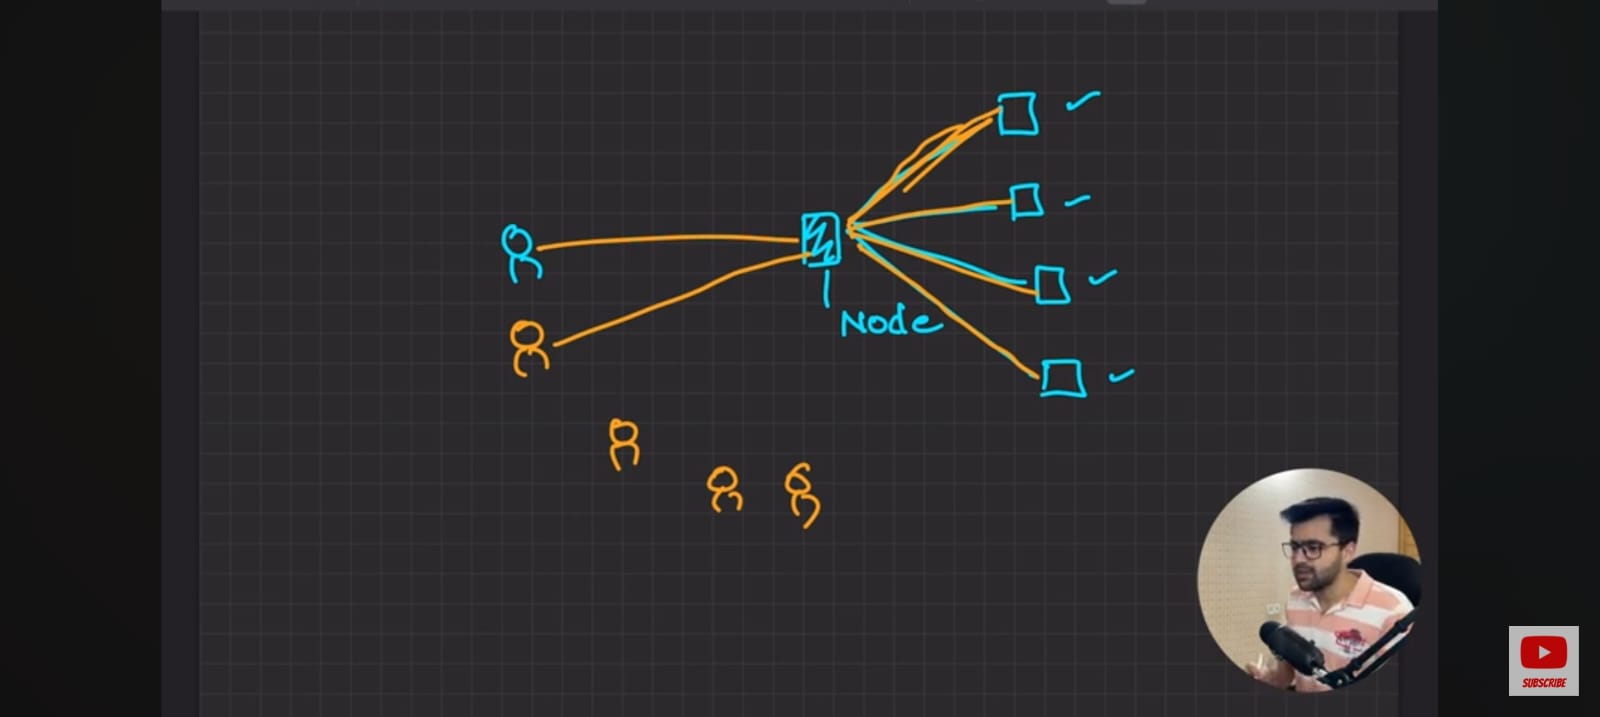 Node
SUBSCRIBE